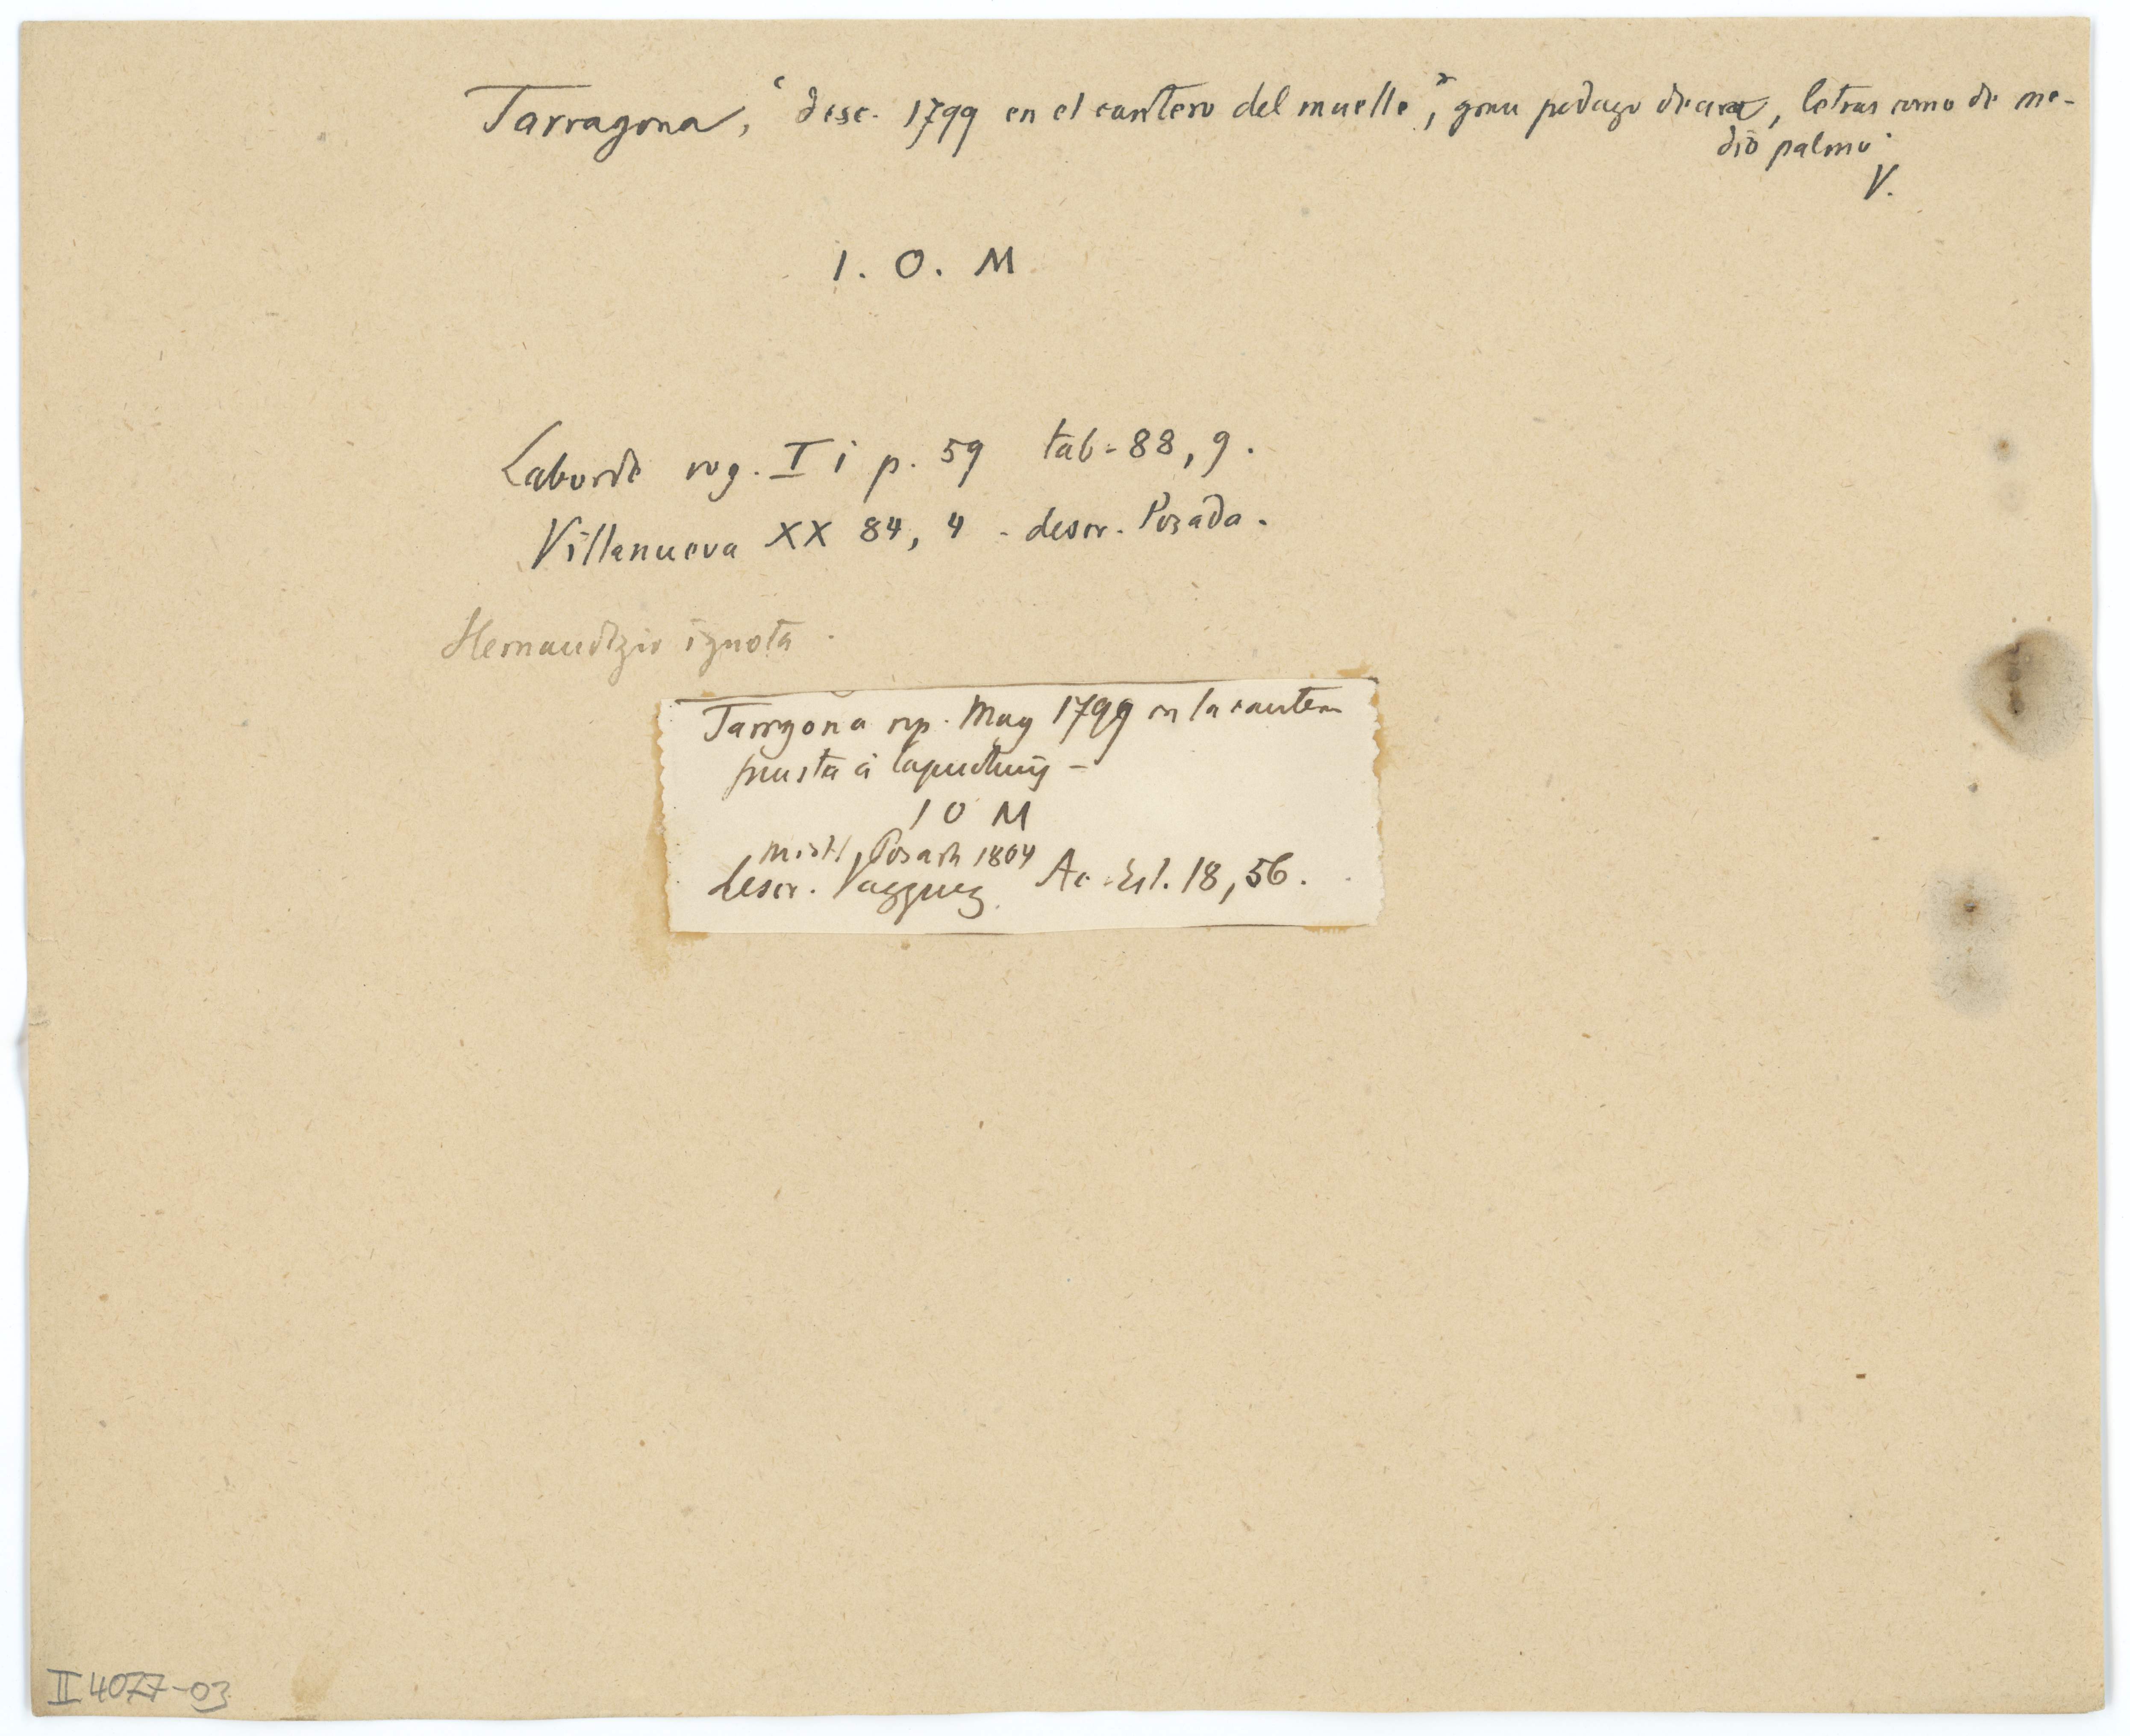 Tarragona, 'desc. 1799 en el cantero del muelle', gran pedazo de ara, letras como de me-
dio palmo'
V.
I. O. M
Laborde voy. I i p. 59 tab. 88, 9.
Villanueva XX 84, 4 - descr. Posada.
Hernandezio ignota.
Tarrgona rep. May 1799 en la cantera
puesta á
I O M
Posada 1804
descr. Vazquez Ac. Esl. 18, 56.
II 4077-03